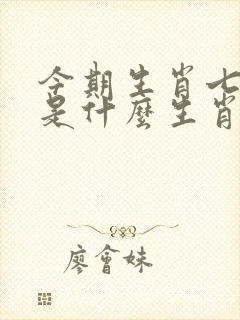 今期生肖七
是什麼生肖
廖會妹